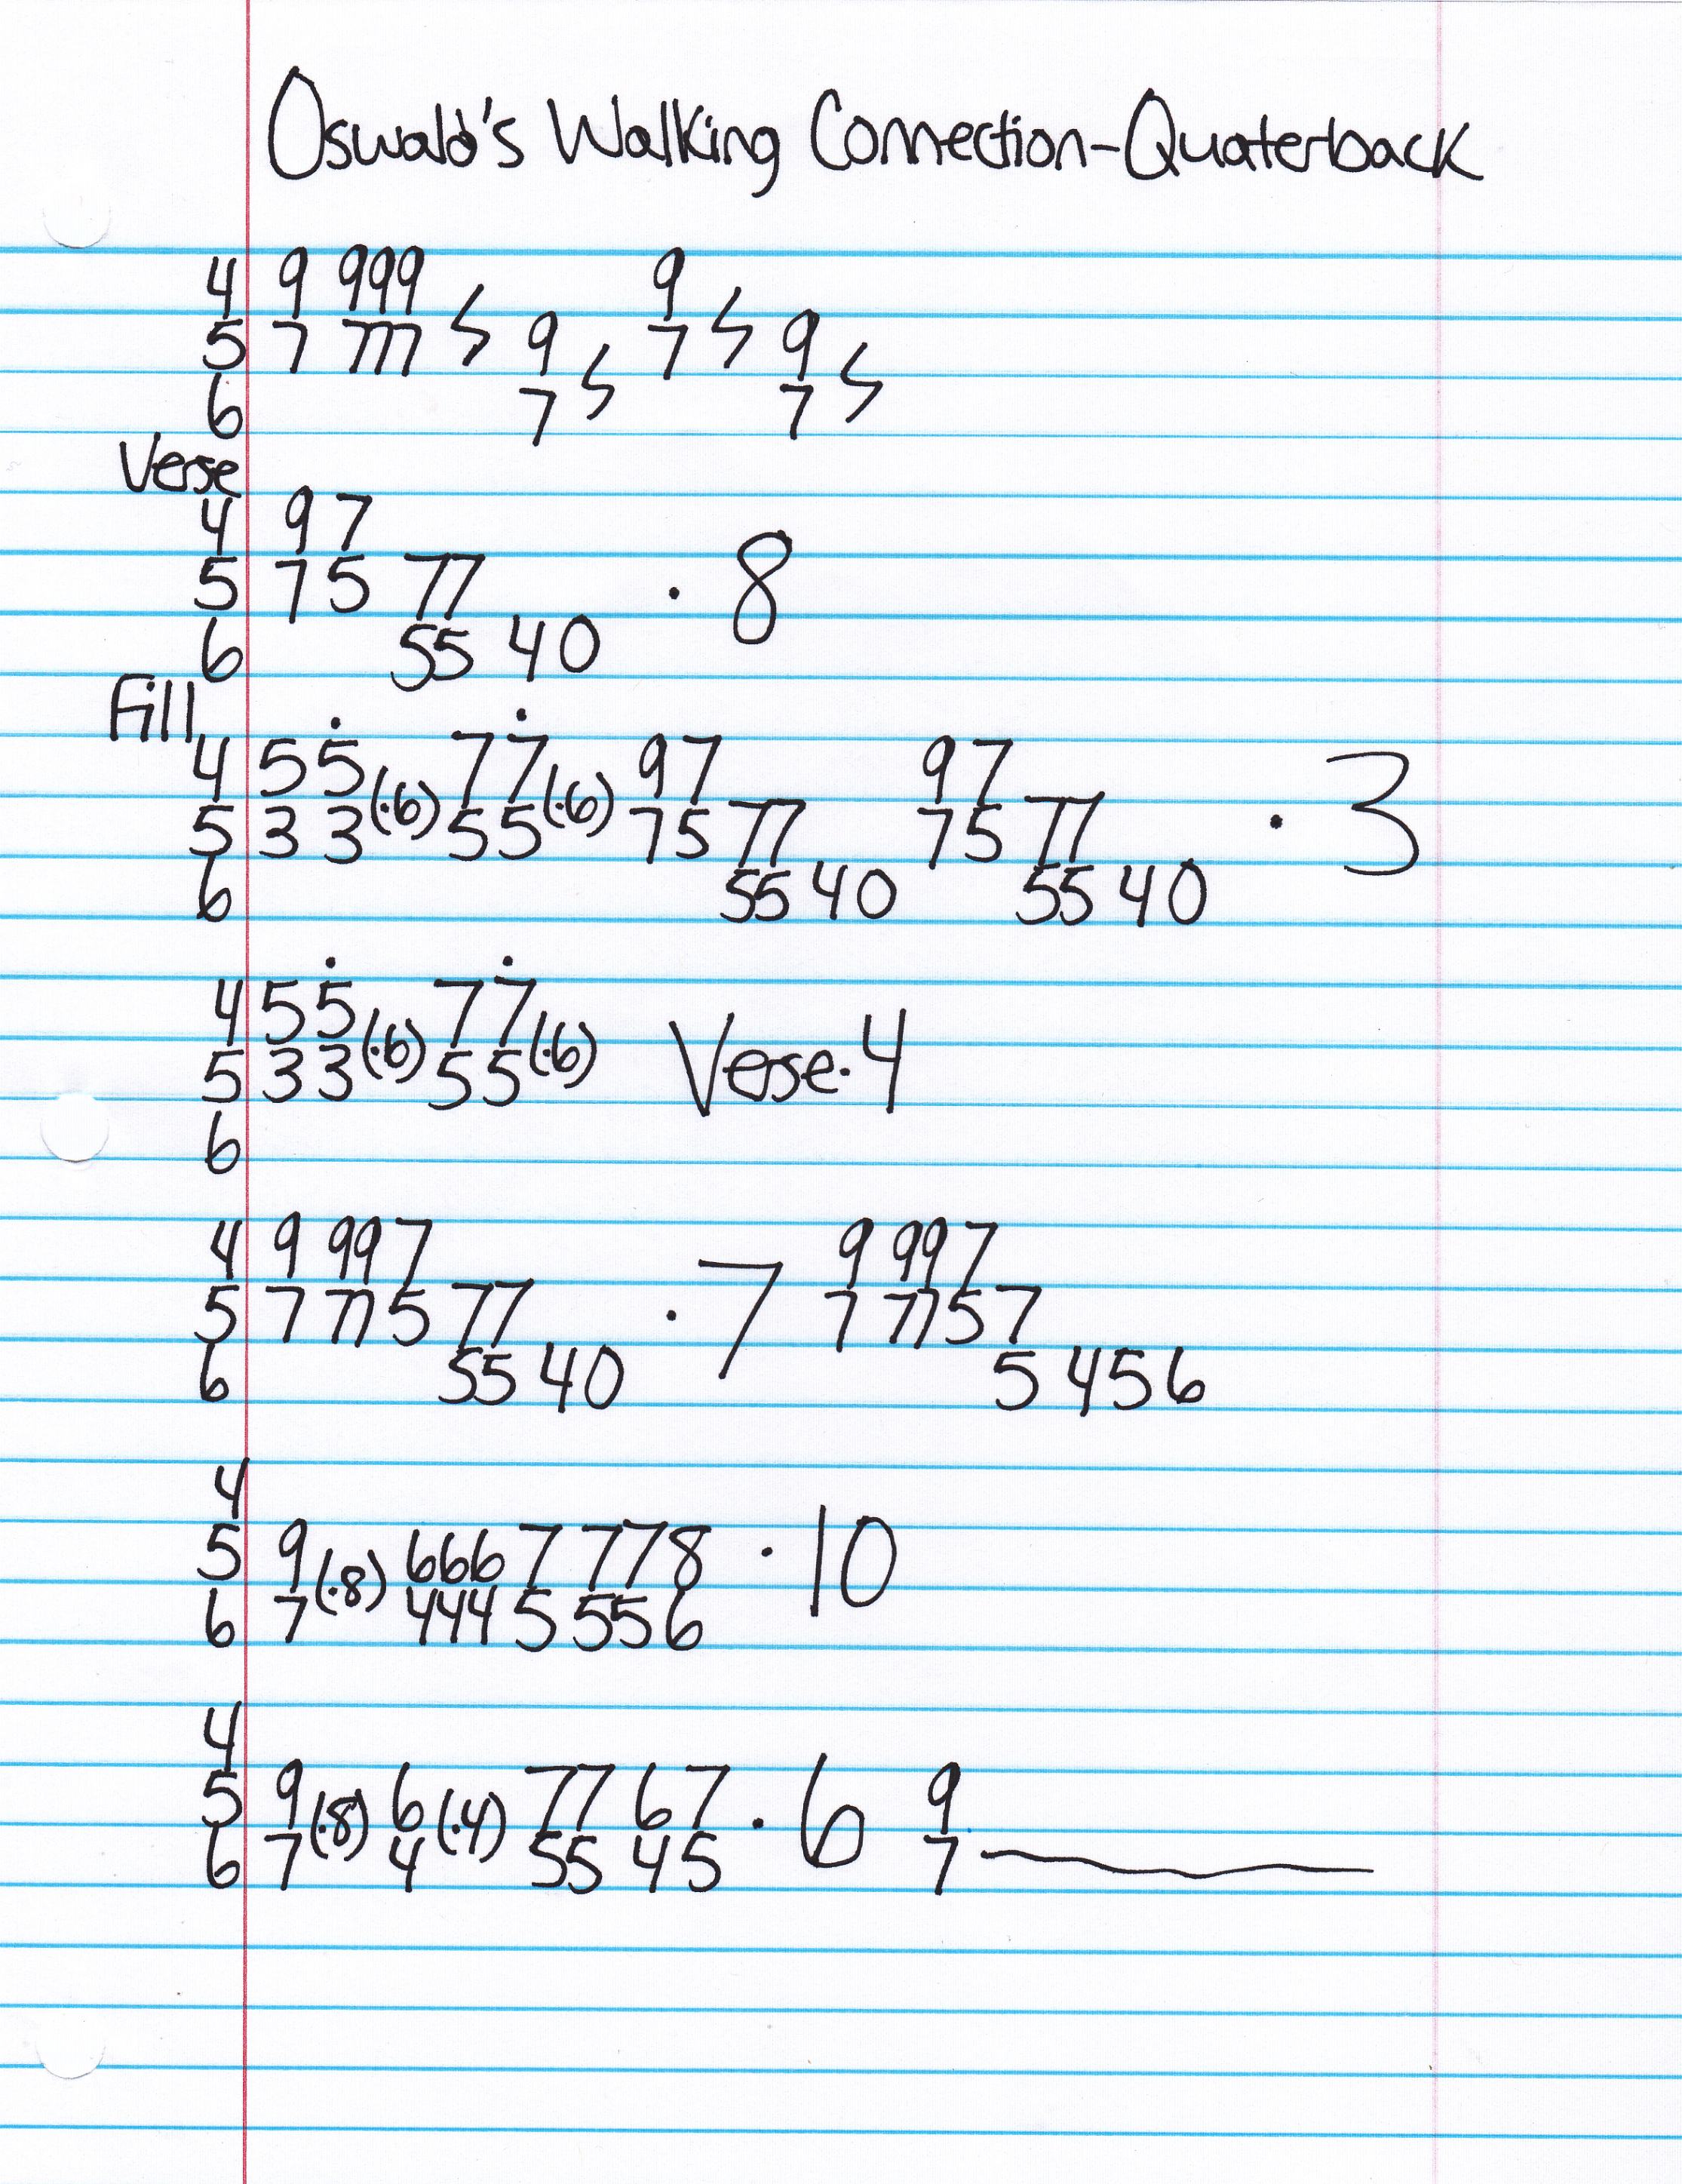 Oswald's Walking Connection-Quaterback
4 9 999 9
5 7 777 ϟ 9 7 ϟ 9
6 7 ϟ 7 ϟ
Verse
4 9 7
5 7 5 77 · 8
6 55 40
Fill
4 5 5̇ 7 7̇ 9 7 9 7
5 3 3 (·6) 5 5 (·6) 7 5 77 7 5 77 · 3
6 55 40 55 40
4 5 5̇ 7 7̇
5 3 3 (·6) 5 5 (·6) Verse·4
6
4 9 99 7 9 99 7
5 7 77 5 77 · 7 7 77 5 7
6 55 40 5 456
4
5 9 (·8) 666 7 778 · 10
6 7 444 5 556
4
5 9 (·8) 6 (·4) 77 67 · 6 9
6 7 4 55 45 7